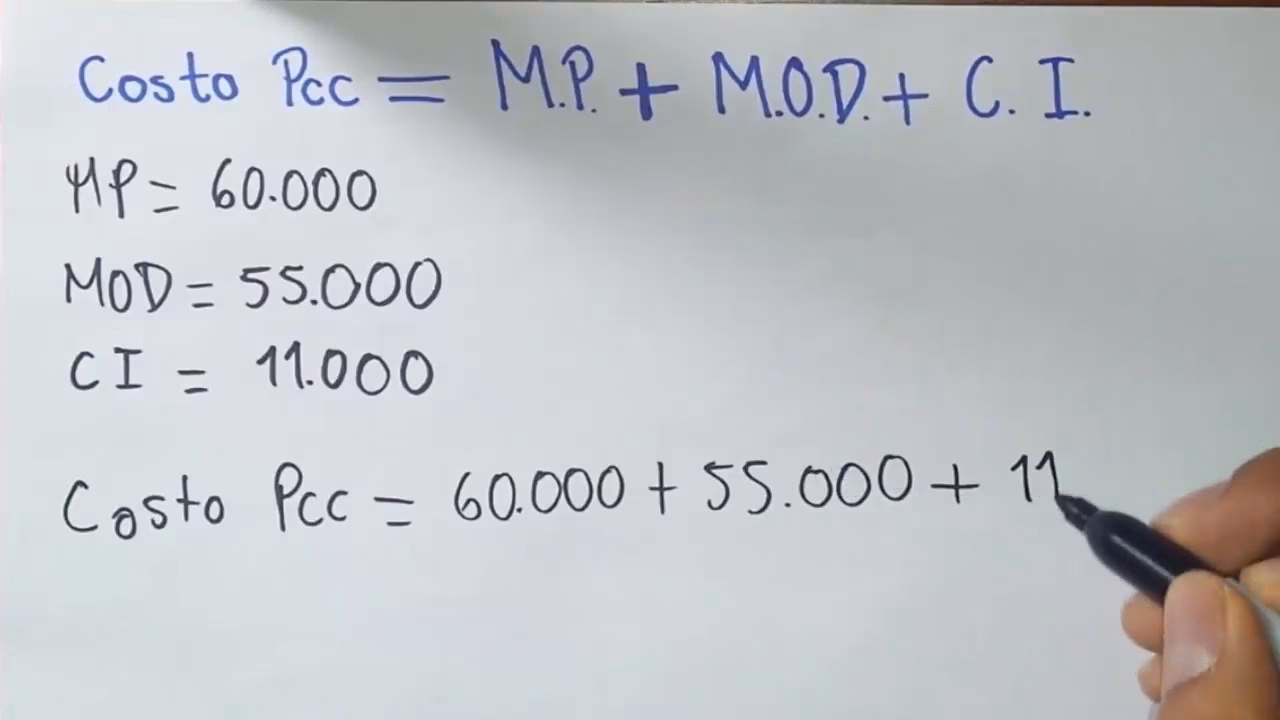 Costo Pcc = M.P. + M.O.D. + C. I.
MP = 60.000
MOD = 55.000
CI = 11.000
Costo Pcc = 60.000 + 55.000 + 11